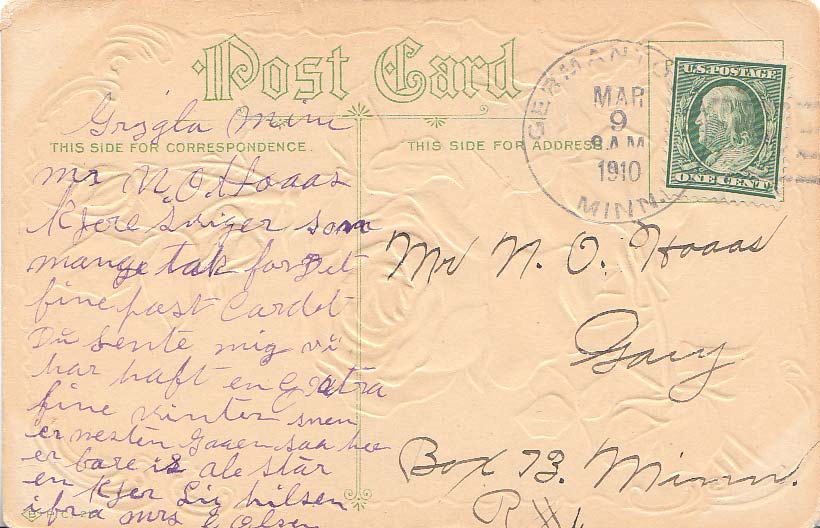 Post Card
THIS SIDE FOR CORRESPONDENCE.
THIS SIDE FOR ADDRESS
GERMANTO
MAR
9
8 AM
1910
MINN.
U.S. POSTAGE
ONE CENT
Grygla Minn
Mr N. O. Hoaas
Kjere Sviger som
mange tak for Det
fine post Cardet
Du sente mig vi
har haft en
fine vinter snen
er nesten Gaaen saa
er bare is ale
en Kjer Lig hilsen
ifra Mrs E Olsen
Mr N. O. Hoaas
Gary
Box 73. Minn.
R